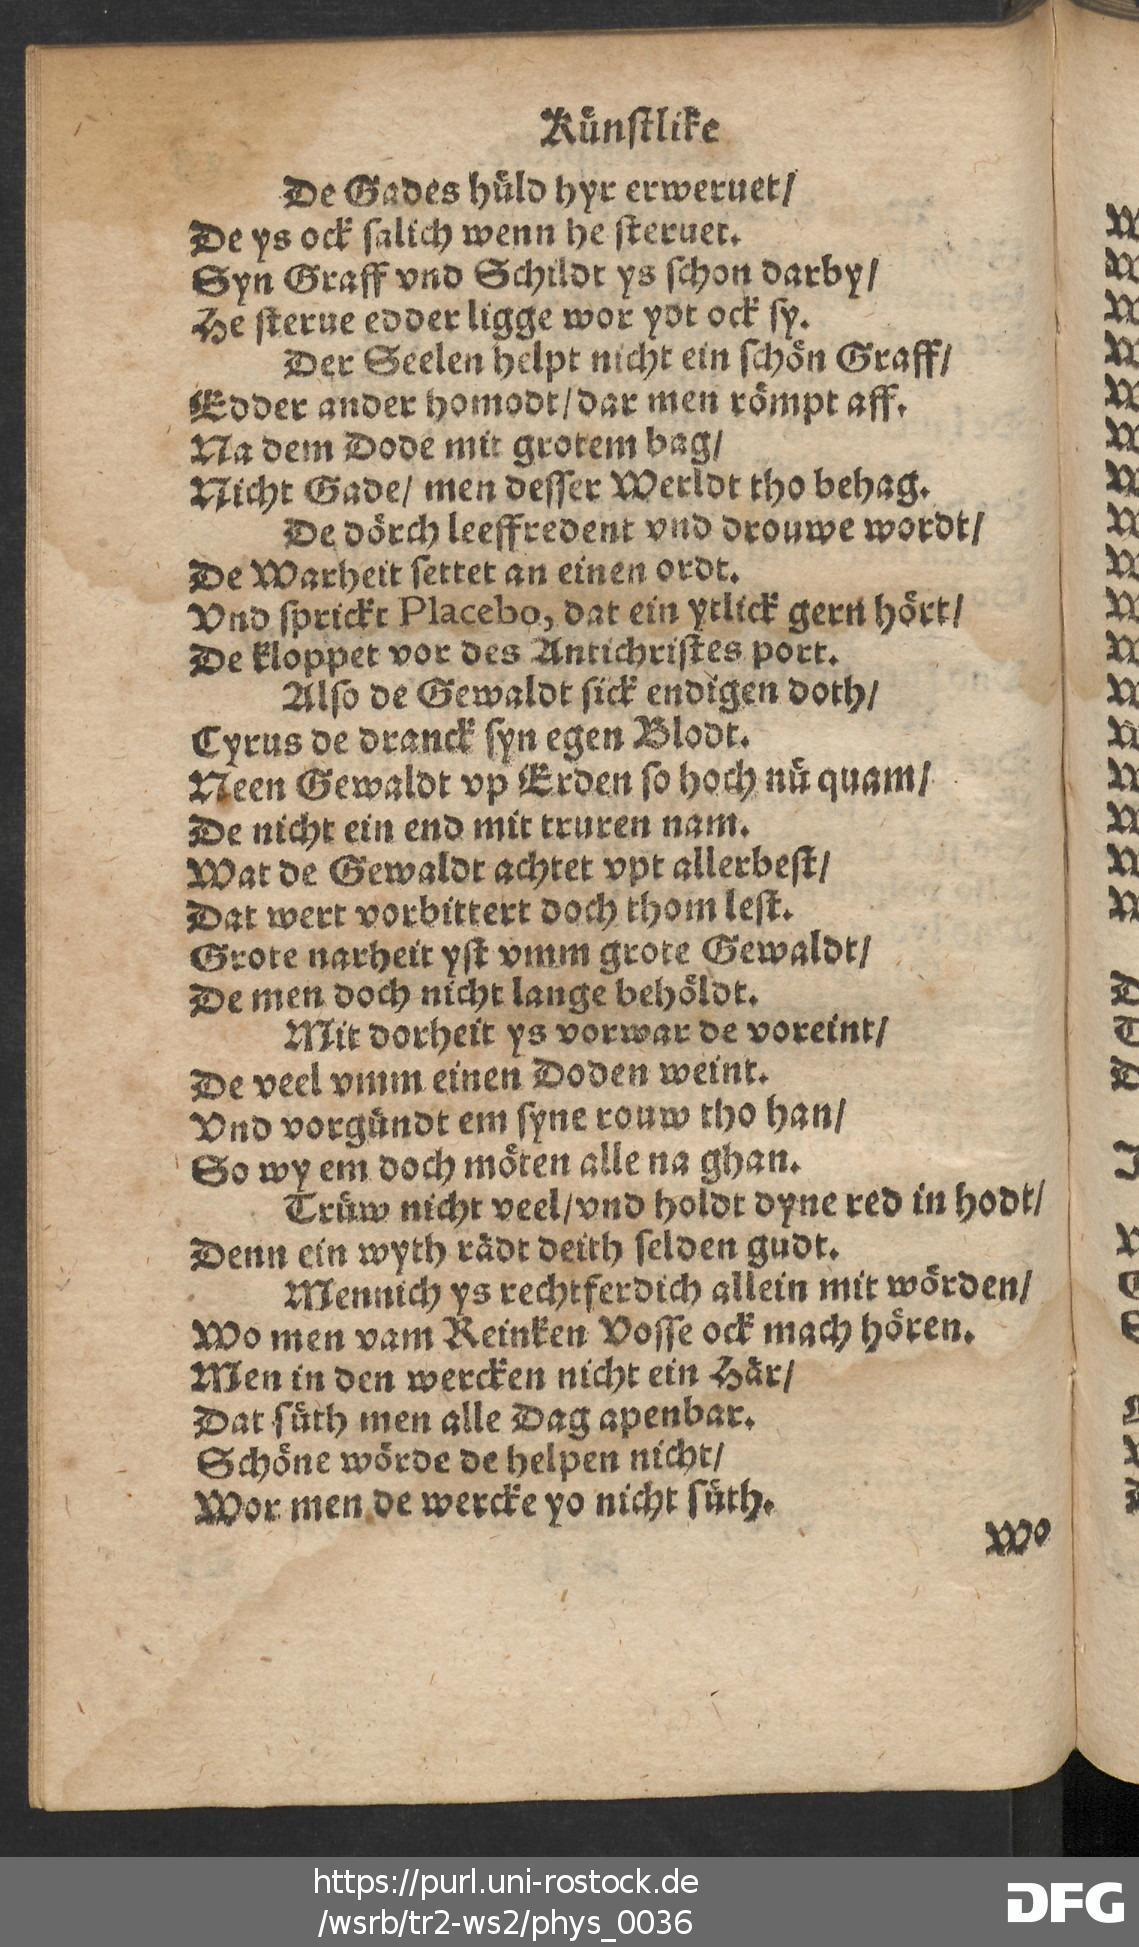 Künstlike
De Gades hüld hyr erweruet/
De ys ock salich wenn he steruet.
Syn Graff vnd Schildt ys schon darby/
He sterue edder ligge wor ydt ock sy.
Der Seelen helpt nicht ein schön Graff/
Edder ander homodt/dar men römpt aff.
Na dem Dode mit grotem bag/
Nicht Gade/ men desser Werldt tho behag.
De dörch leeffredent vnd drouwe wordt/
De Warheit settet an einen ordt.
Vnd sprickt Placebo, dat ein ytlick gern hört/
De kloppet vor des Antichristes port.
Also de Gewaldt sick endigen doth/
Cyrus de dranck syn egen Blodt.
Neen Gewaldt vp Erden so hoch nü quam/
De nicht ein end mit truren nam.
Wat de Gewaldt achtet vpt allerbest/
Dat wert vorbittert doch thom lest.
Grote narheit yst vmm grote Gewaldt/
De men doch nicht lange behöldt.
Mit dorheit ys vorwar de voreint/
De veel vmm einen Doden weint.
Vnd vorgündt em syne rouw tho han/
So wy em doch möten alle na ghan.
Trüw nicht veel/vnd holdt dyne red in hodt/
Denn ein wyth rädt deith selden gudt.
Mennich ys rechtferdich allein mit wörden/
Wo men vam Reinken Vosse ock mach hören.
Men in den wercken nicht ein Här/
Dat süth men alle Dag apenbar.
Schöne wörde de helpen nicht/
Wor men de wercke yo nicht süth.
Wo
https://purl.uni-rostock.de
/wsrb/tr2-ws2/phys_0036
DFG